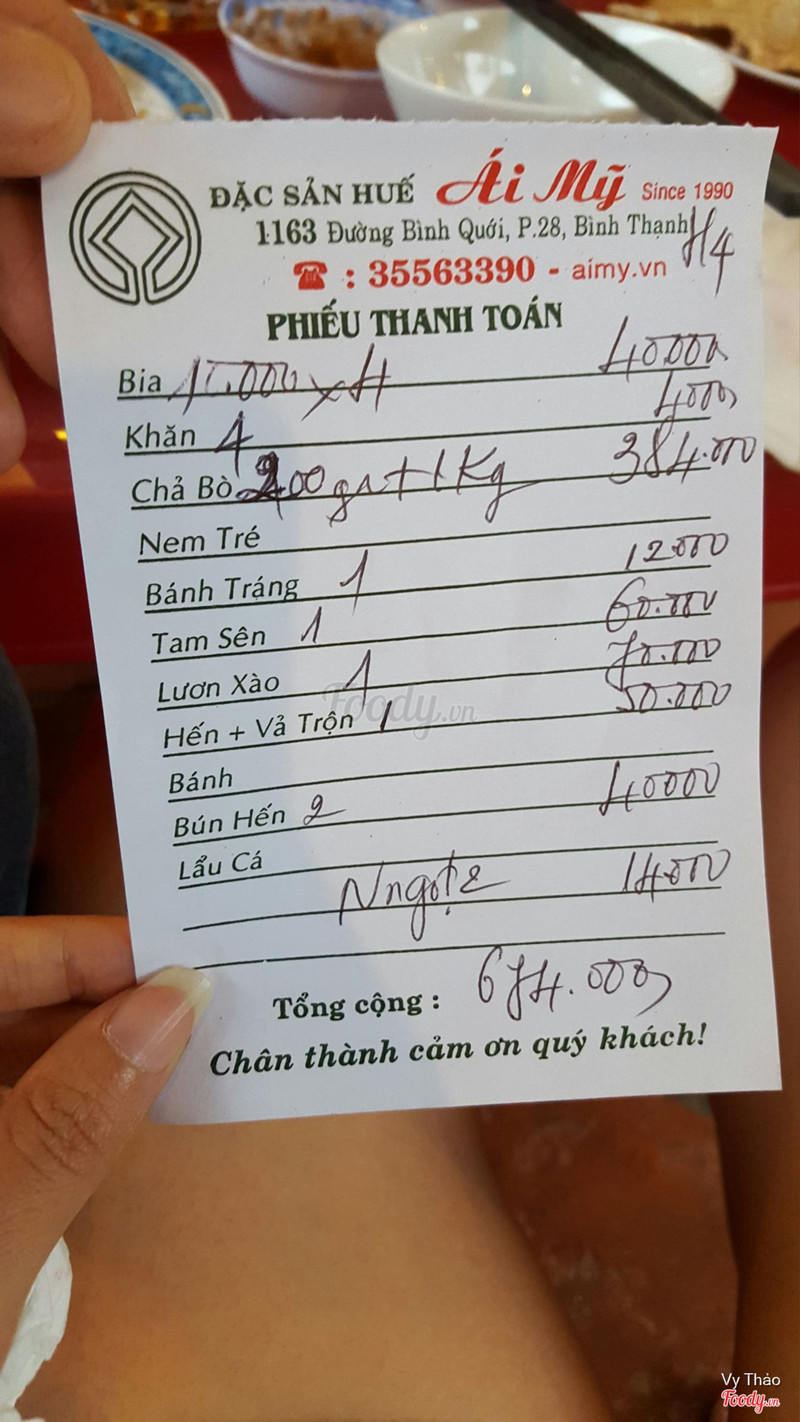 ĐẶC SẢN HUẾ Ái Mỹ Since 1990
1163 Đường Bình Quới, P.28, Bình Thạnh
H4
☎ : 35563390 - aimy.vn
PHIẾU THANH TOÁN
Bia x 4 40000
Khăn 4 4000
Chả Bò 200 ga + 1 Kg 384.000
Nem Tré
Bánh Tráng 1 12.000
Tam Sên 1 60.000
Lươn Xào 1 70.000
Hến + Vả Trộn 1 50.000
Bánh
Bún Hến 2 40000
Lẩu Cá
Nngọt 2 14.000
Tổng cộng : 674.000
Chân thành cảm ơn quý khách!
Foody.vn
Vy Thảo
Foody.vn